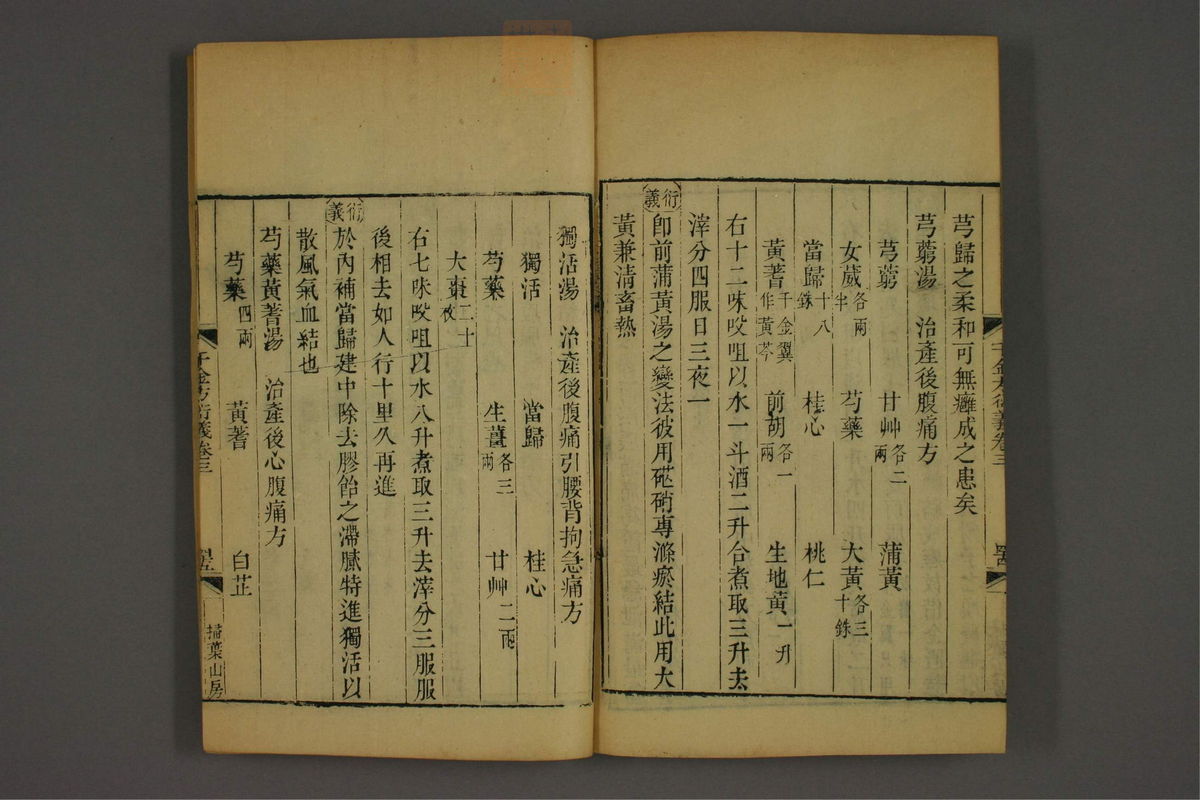 芎歸之柔和可無癰成之患矣
芎藭湯　治產後腹痛方
芎藭　甘艸各二兩　蒲黃
女葳各兩半　芍藥　大黃各三十銖
當歸十八銖　桂心　桃仁
黃蓍千金翼作黃芩　前胡各一兩　生地黃一升
右十二味㕮咀以水一斗酒二升合煮取三升去
滓分四服日三夜一
衍義
即前蒲黃湯之變法彼用硭硝專滌瘀結此用大
黃兼清畜熱
千金方衍義卷三
獨活湯　治產後腹痛引腰背拘急痛方
獨活　當歸　桂心
芍藥　生薑各三兩　甘艸二兩
大棗二十枚
右七味㕮咀以水八升煮取三升去滓分三服服
後相去如人行十里久再進
衍義
於內補當歸建中除去膠飴之滯膩特進獨活以
散風氣血結也
芍藥黃蓍湯　治產後心腹痛方
芍藥四兩　黃蓍　白芷
千金方衍義卷三
掃葉山房